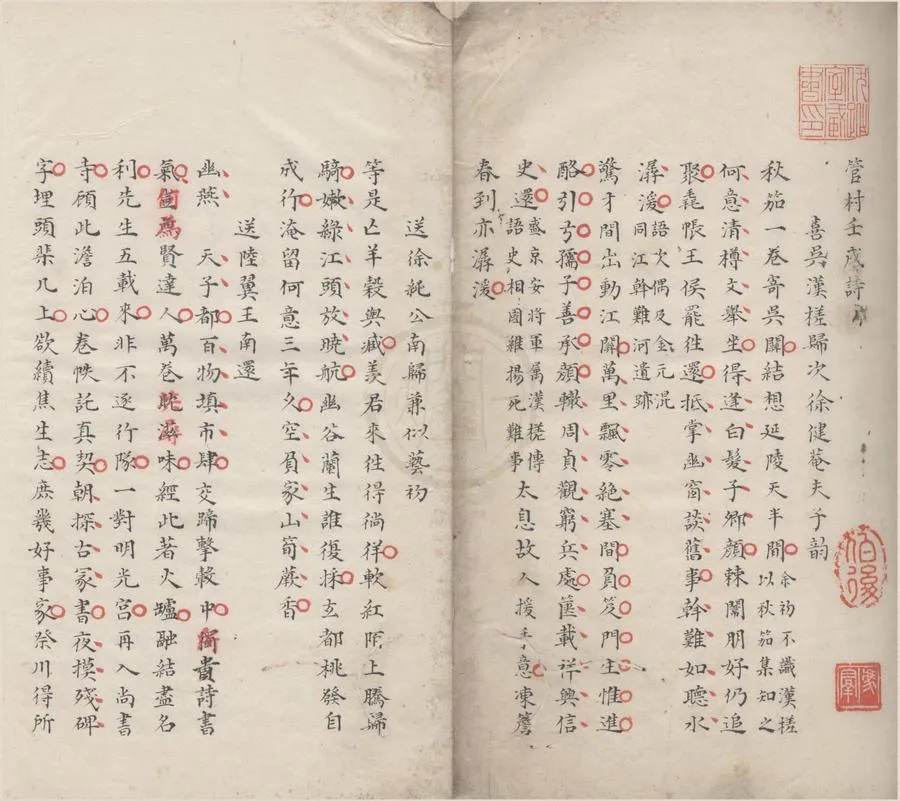 管村壬戌詩
喜吳漢槎歸次徐健菴夫子韵
秋笳一卷寄吳關結想延陵天半間余初不識漢槎
以秋笳集知之
何意清樽文舉坐得逢白髮子卿顏棘闈朋好仍追
聚毳帳王侯罷徃還抵掌幽窗談舊事幹難如聽水
潺湲語次偶及金元混
同江幹難河遺跡
驚才間出動江關萬里飄零絶塞間負笈門生惟進
酪引弓孺子善承顔轍周貞觀窮兵處筐載祥興信
史還盛京安將軍屬漢槎傳
語史相國維揚死難事太息故人援手意凍簷
春到亦潺湲
送徐紞公南歸兼似藝初
等是亾羊穀與臧羡君來徃得徜徉軟紅陌上騰歸
騎嫩綠江頭放曉航幽谷蘭生誰復採玄都桃發自
成行淹留何意三年久空負家山筍蕨香
送陸翼王南還
幽燕 天子都百物填市肆交蹄擊轂中獨賣詩書
氣賢達人萬卷滋味經此著火爐融結盡名
利先生五載來非不逐行隊一對明光宮再入尚書
寺顧此澹泊心卷帙託真契朝探古冡書夜摸殘碑
字埋頭棐几上欲續焦生志庶幾好事家祭川得所